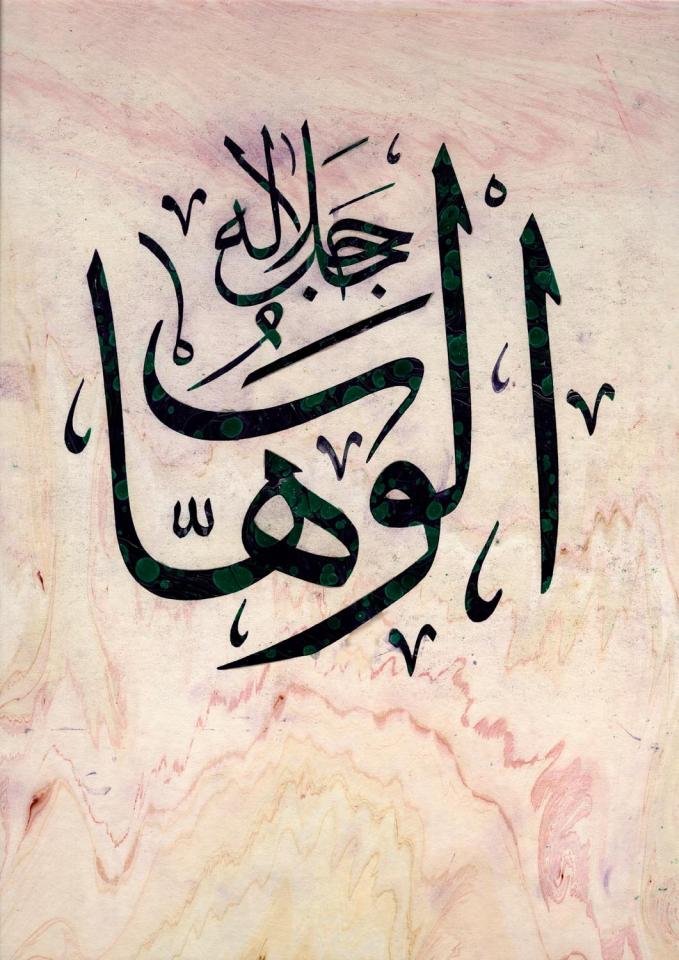 الوهّاب
جل جلاله